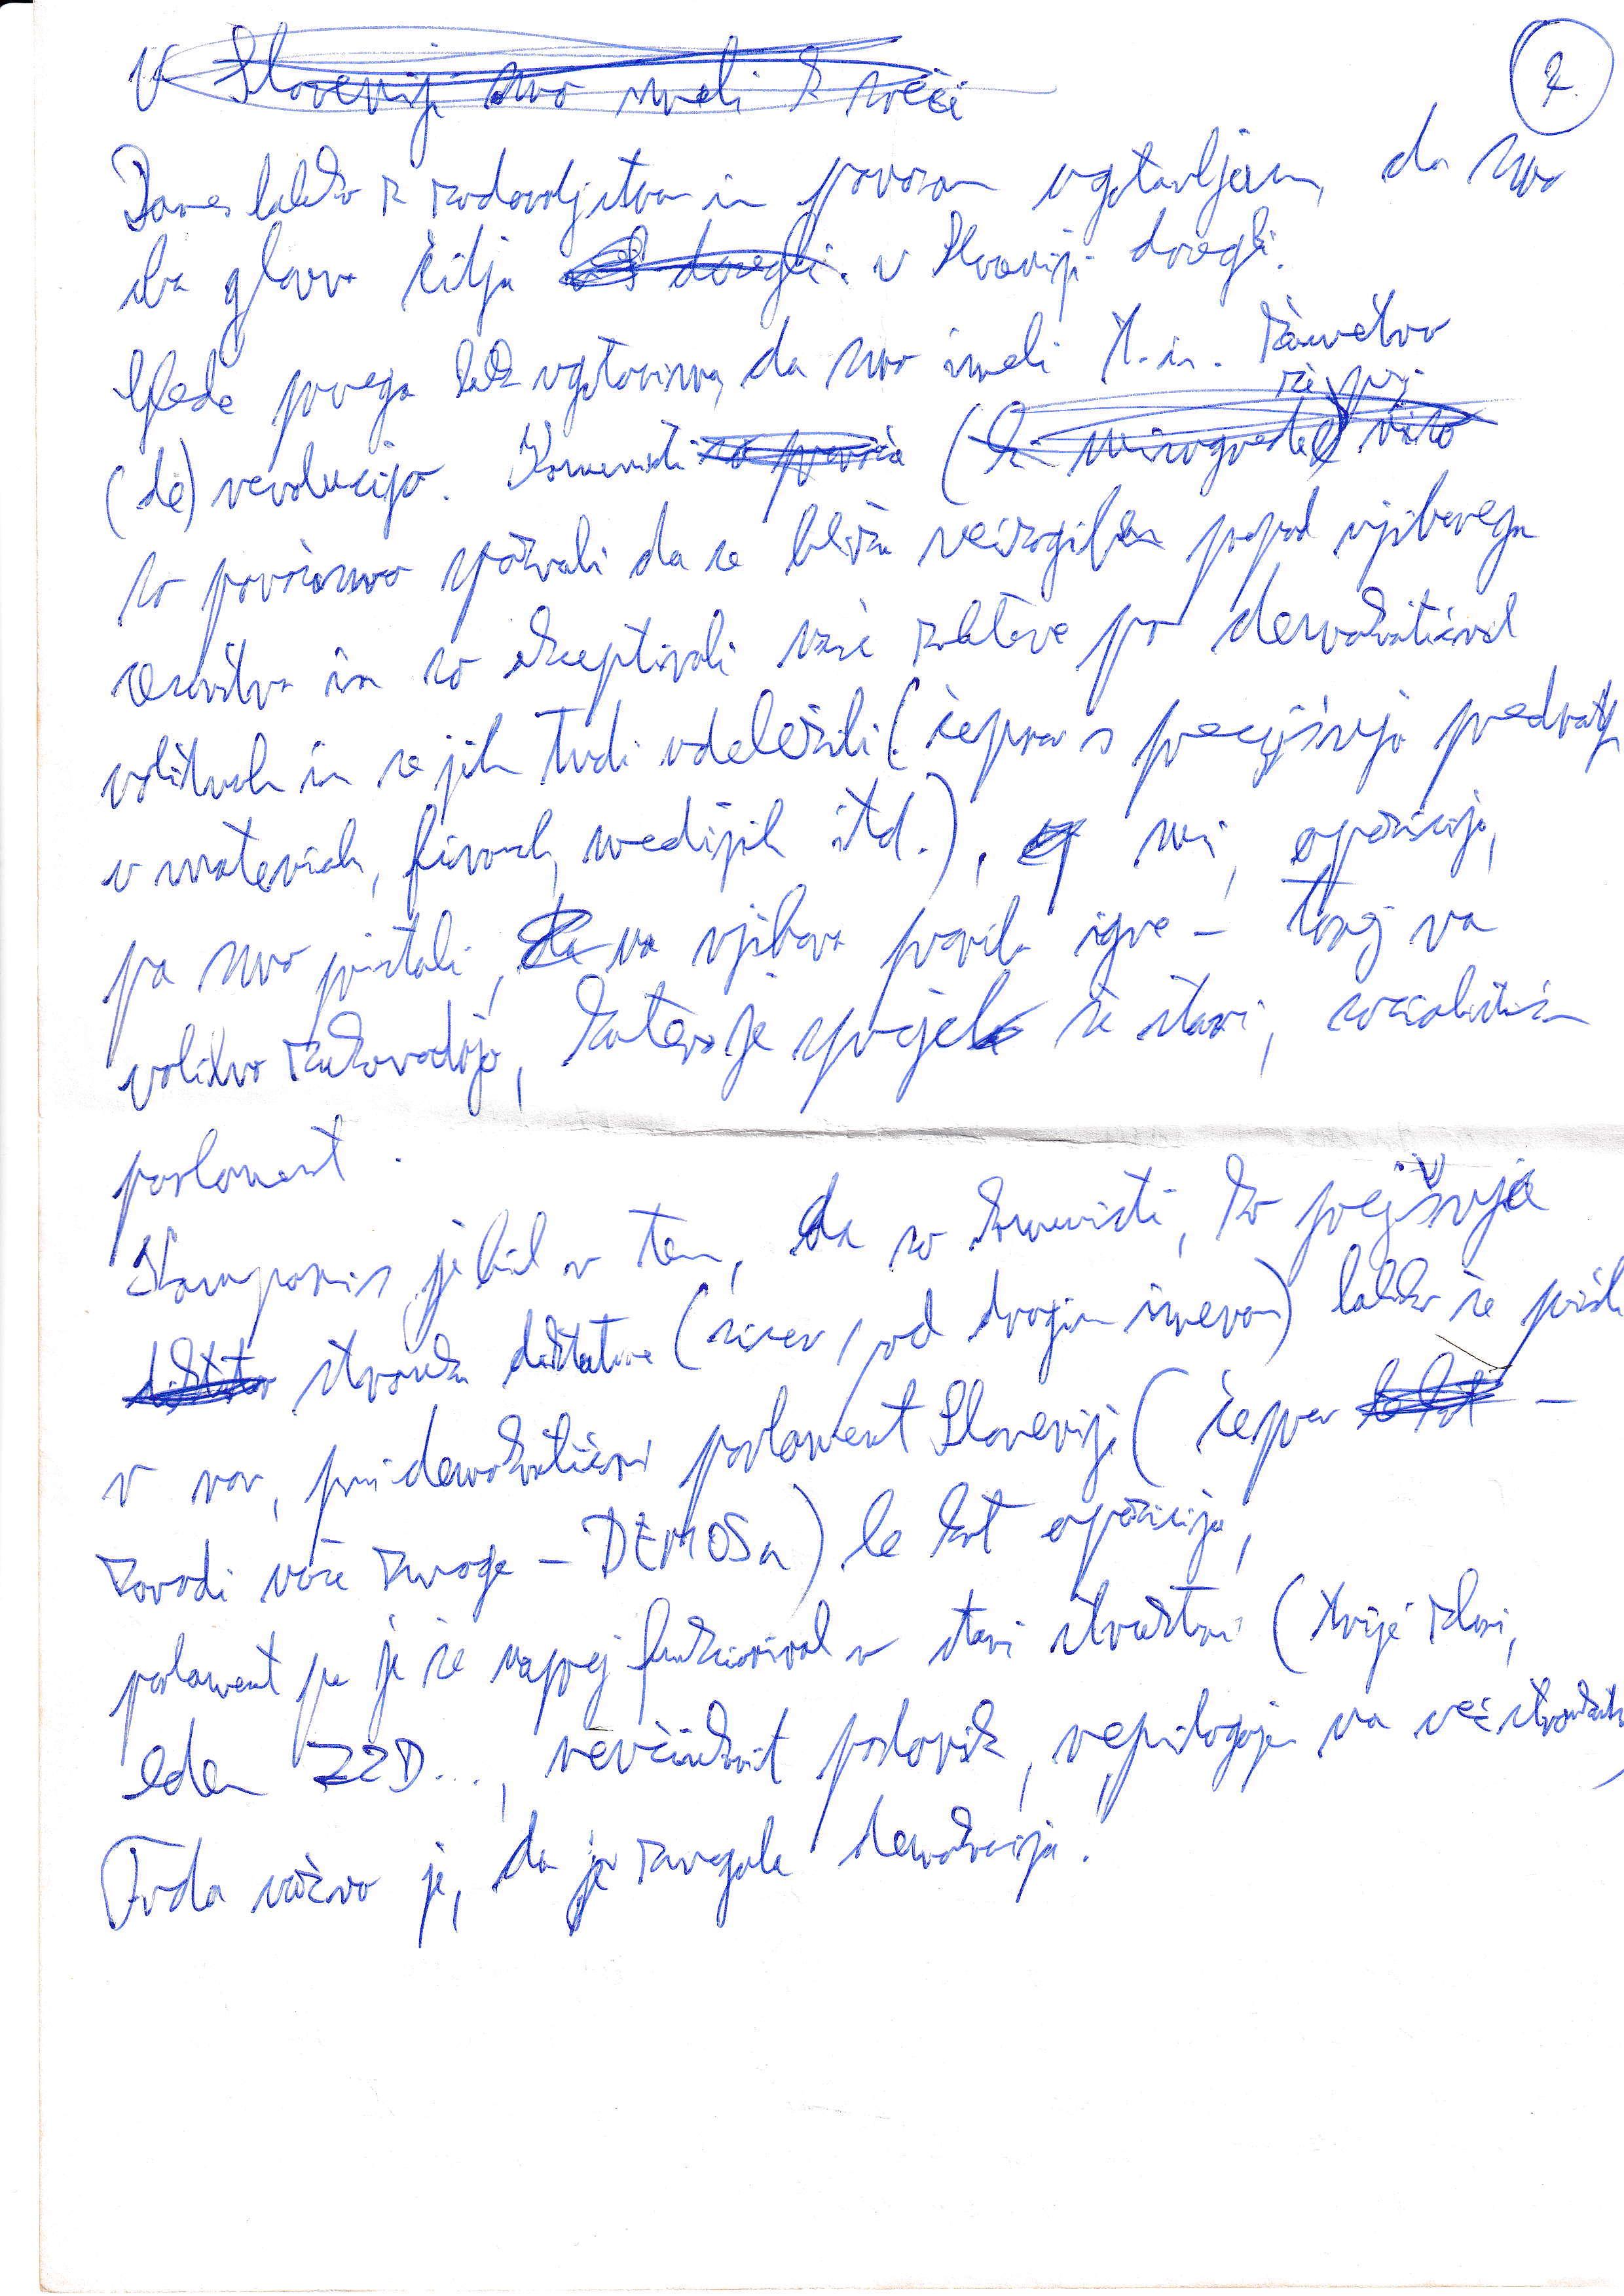 V Sloveniji smo imeli k sreči
2.
Danes lahko z zadovoljstvom in ponosom ugotavljam, da smo
oba glavna cilja dosegli. v Sloveniji dosegli.
Glede prvega lahko ugotovimo, da smo imeli t.i. žametno
(de) revolucijo. Komunisti so (ki mimogrede niso že prej
so pravočasno spoznali da se bliža neizogiben propad njihovega
sistema in so akceptirali naše zahteve po demokratičnih
volitvah in se jih tudi udeležili (čeprav s precejšnjo prednostjo
v materialnih, finančnih, medijih itd.), mi, opozicija,
pa smo pristali, da na njihova pravila igre – torej na
volilno zakonodajo, katero je sprejel še stari, socialistični
parlament.
Kompromis je bil v tem, da so komunisti, ko prejšnja
diktator stranka diktature (sicer pod drugim imenom) lahko še prišli
v nov, prvi demokratični parlament Slovenije (čeprav le kot –
zaradi naše zmage – DEMOSa) le kot opozicija,
parlament pa je še naprej funkcioniral v stari strukturi (trije zbori,
eden ZZD..., neučinkovit poslovnik, neprilagojen na večstrankarstvo)
Toda važno je, da je zmagala demokracija.